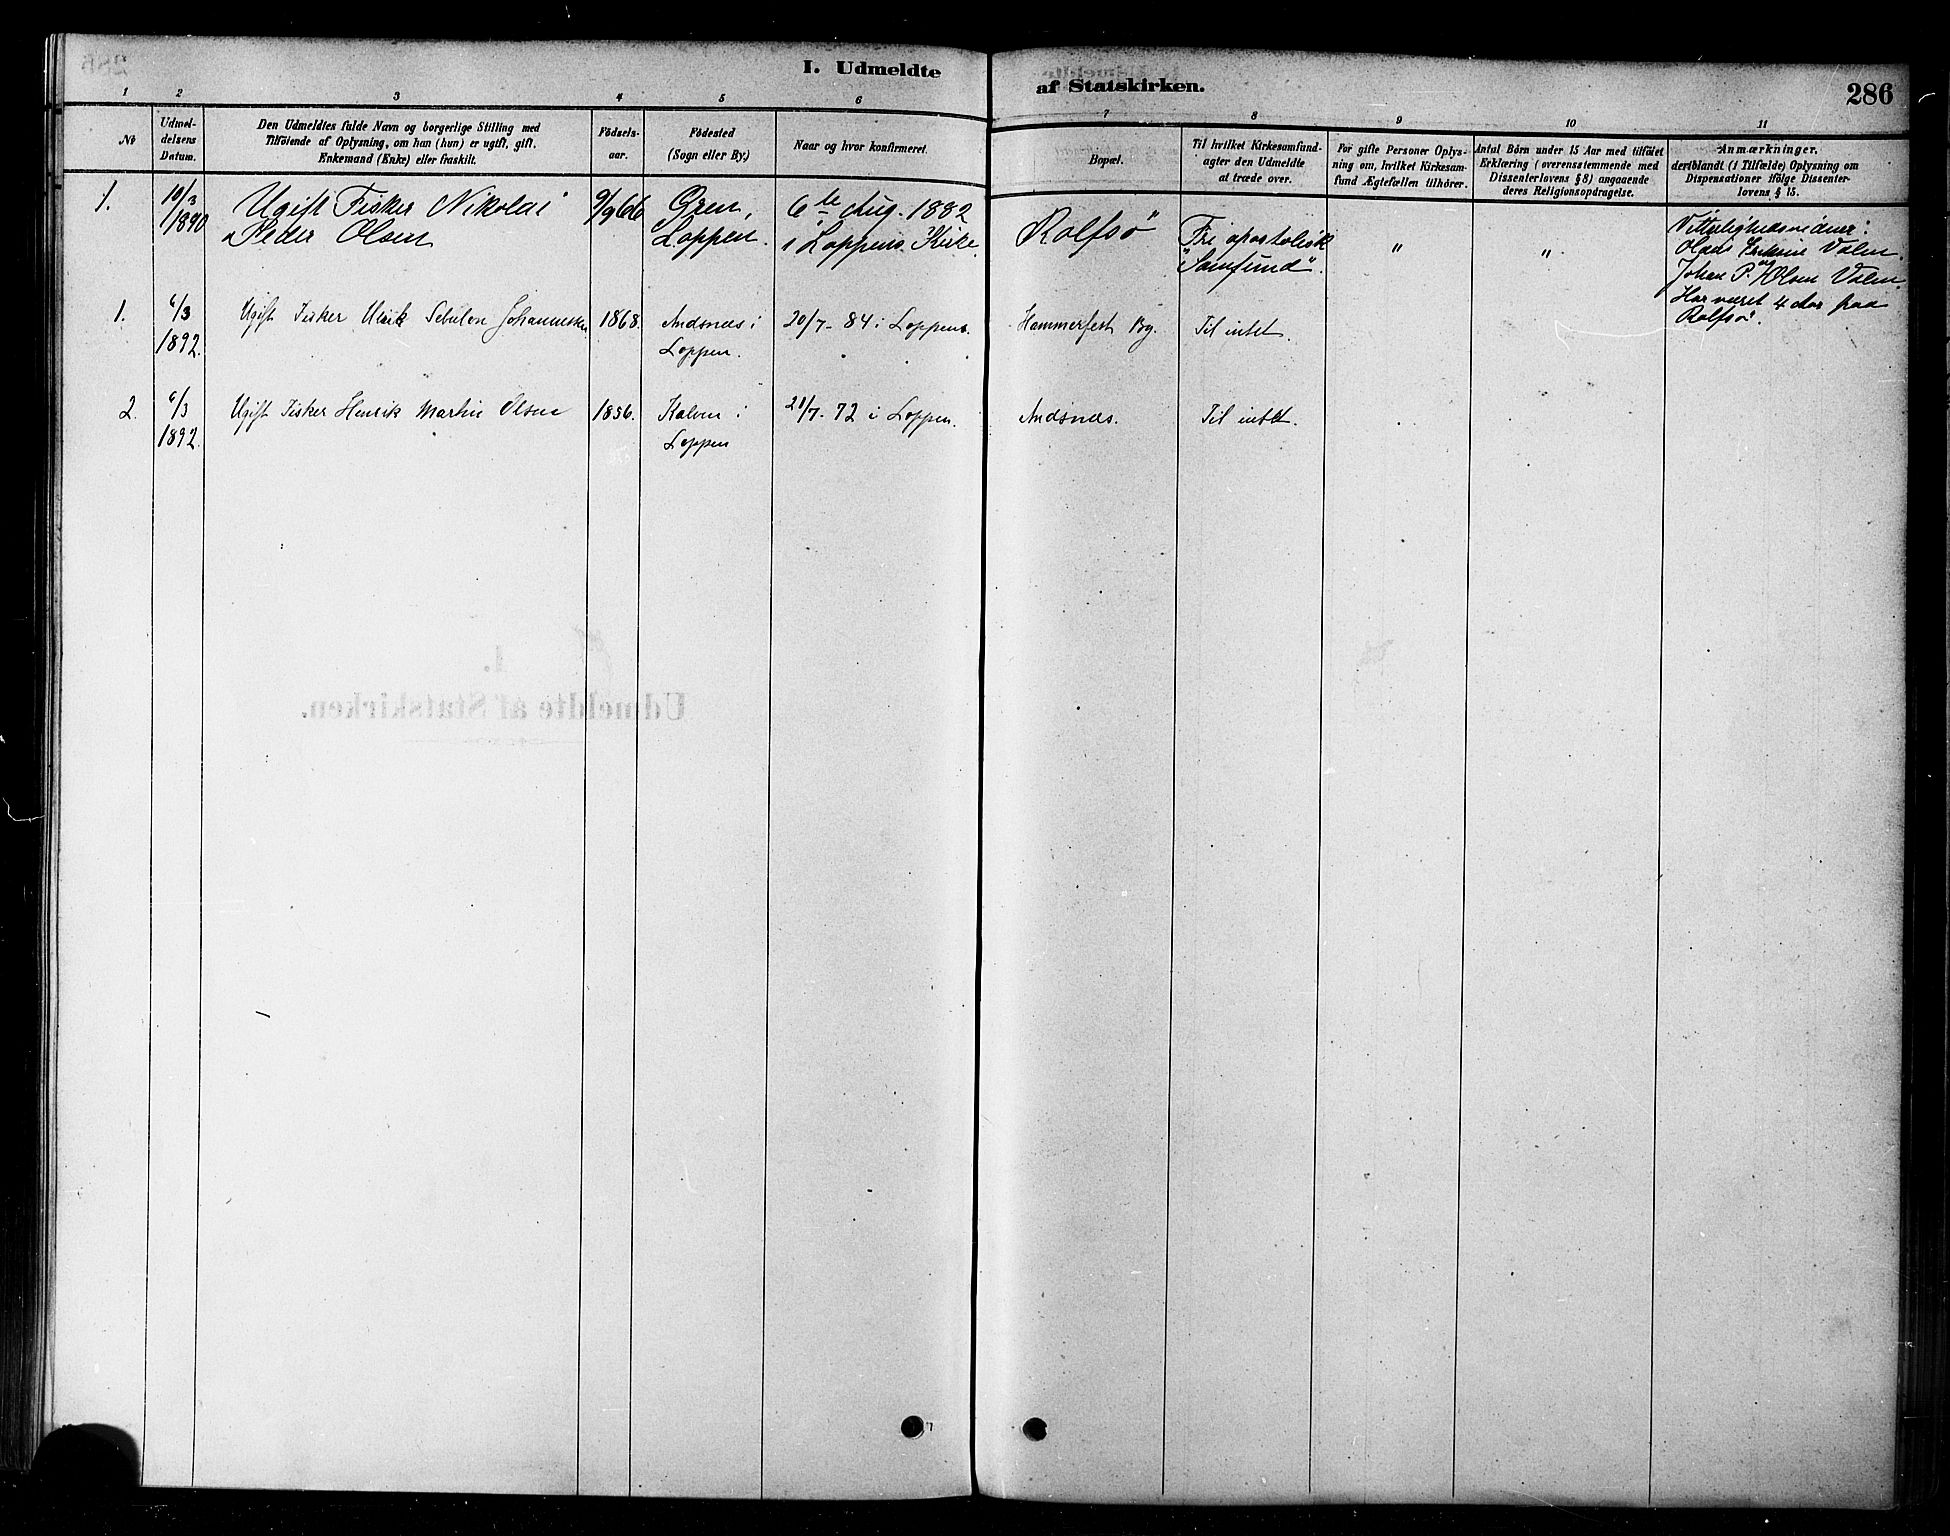 I. Udmeldte
af Statskirken.
286
1 2 3 4 5 6 7 8 9 10 11
No
Udmel-
delsens
Datum.
Den Udmeldtes fulde Navn og borgerlige Stilling med
Tilföiende af Oplysning, om han (hun) er ugift, gift,
Enkemand (Enke) eller fraskilt.
Födsels-
aar.
Födested
(Sogn eller By.)
Naar og hvor konfirmeret.
Bopæl.
Til hvilket Kirkesamfund-
agter den Udmeldte
at træde over.
For gifte Personer Oplys-
ning om, hvilket Kirkesam-
fund Ægtefællen tilhörer.
Antal Börn under 15 Aar med tilföiet
Erklæring (overensstemmende med
Dissenterlovens § 8) angaaende
deres Religionsopdragelse.
Anmærkninger.
deriblandt (i Tilfælde) Oplysning om
Dispensationer ifölge Dissenter-
lovens § 15.
1.
10/3
1890
Ugift Fisker Nikolai
Peder Olsen
9/9 66
Øren,
Loppen.
6te Aug. 1882
i Loppens Kirke.
Rolfsö
Fri apostolisk
"Samfund".
"
"
Vitterlighedsvidner:
Valen.
Johan P. Olsen Valen.
Har været 4 Aar paa
Rolfsö.
1.
6/3
1892.
Ugift Fisker Ulrik Sebulon Johannesen
1868.
Andsnes i
Loppen.
20/7-84 i Loppens.
Hammerfest By.
Til intet.
2.
6/3
1892.
Ugift Fisker Henrik Martin Olsen
1856.
Kalven i
Loppen
21/7-72 i Loppen.
Andsnes.
Til intet.
I.
Udmeldte af Statskirken.